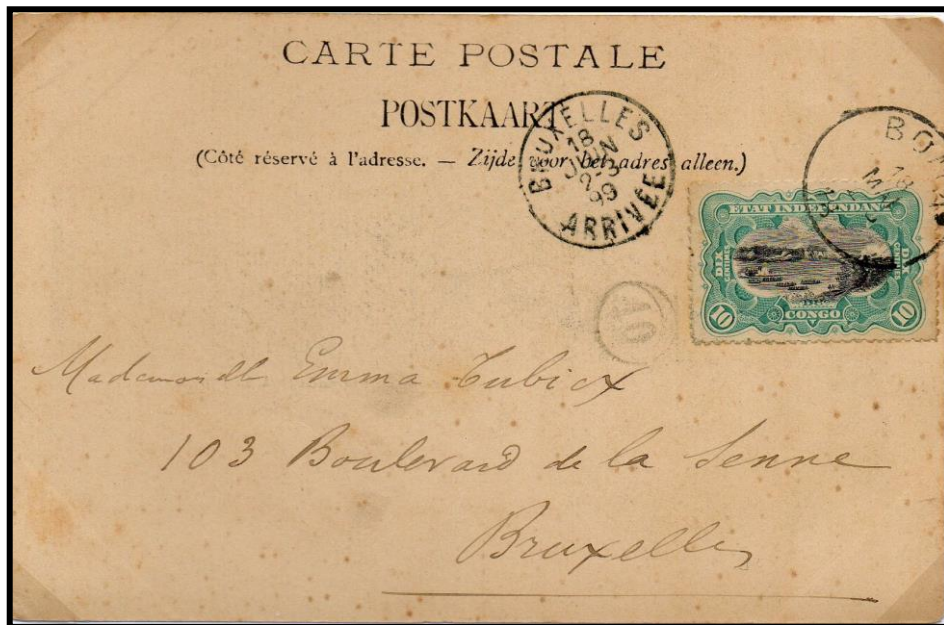 CARTE POSTALE
POSTKAART
(Côté réservé à l'adresse. — Zijde voor het adres alleen.)
BRUXELLES
18
JUIN
99
ARRIVÉE
BOMA
18
ETAT INDÉPENDANT
DIX CENTIMES
DIX CENTIMES
10
CONGO
10
40
Mademoiselle Emma
103 Boulevard de la Senne
Bruxelles